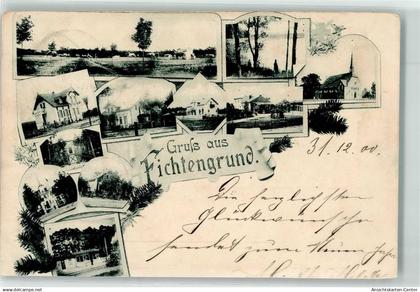 Gruß aus
Fichtengrund.
31.12.00.
Die herzlichsten
Glückwünsche
sendet zum Neuen Jahr
akpool.de
Ansichtskarten-Center